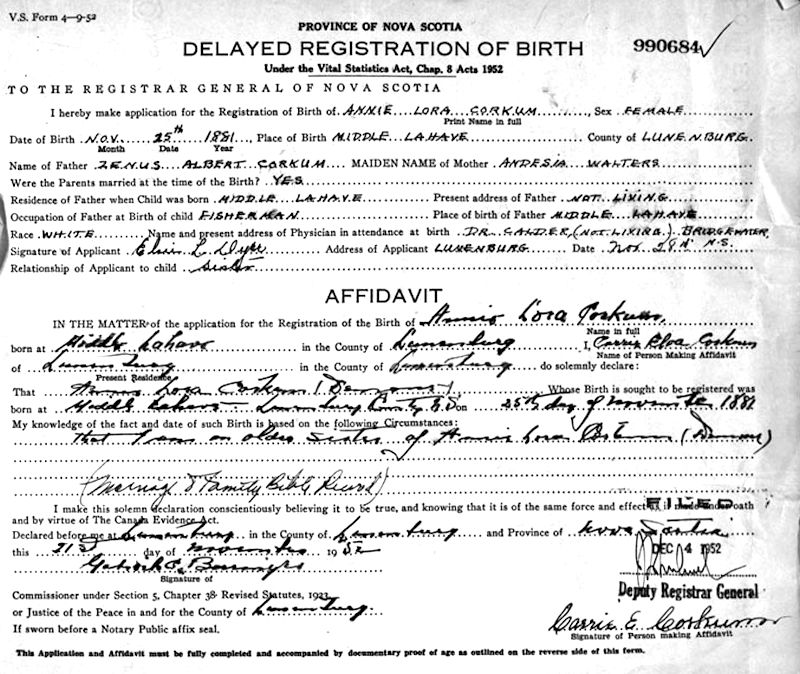 V.S. Form 4-9-52
PROVINCE OF NOVA SCOTIA
DELAYED REGISTRATION OF BIRTH
990684
Under the Vital Statistics Act, Chap. 8 Acts 1952
TO THE REGISTRAR GENERAL OF NOVA SCOTIA
I hereby make application for the Registration of Birth of ANNIE LORA CORKUM, Sex FEMALE
Print Name in full
Date of Birth NOV. 25th 1881, Place of Birth MIDDLE LAHAVE County of LUNENBURG.
Month Date Year
Name of Father ZENUS ALBERT CORKUM MAIDEN NAME of Mother ANDESIA WALTERS
Were the Parents married at the time of the Birth? YES
Residence of Father when Child was born MIDDLE LAHAVE Present address of Father NOT LIVING
Occupation of Father at Birth of child FISHERMAN Place of birth of Father MIDDLE LAHAVE
Race WHITE Name and present address of Physician in attendance at birth DR. CALDER (NOT LIVING) BRIDGEWATER,
Signature of Applicant L. Address of Applicant LUNENBURG Date Nov. N.S.
Relationship of Applicant to child sister
AFFIDAVIT
IN THE MATTER of the application for the Registration of the Birth of Annie Lora Corkum
Name in full
born at Middle Lahave in the County of Lunenburg I, Carrie Corkum
Name of Person Making Affidavit
of Lunenburg in the County of Lunenburg do solemnly declare:
Present Residence
That Annie Lora Corkum Whose Birth is sought to be registered was
born at Middle Lahave Lunenburg County N.S. on 25th day of November 1881
My knowledge of the fact and date of such Birth is based on the following Circumstances:
That I am an older sister of Annie Lora Corkum
(Marriage & Family Bible Record)
I make this solemn declaration conscientiously believing it to be true, and knowing that it is of the same force and effect as if made under oath
and by virtue of The Canada Evidence Act.
FILED
Declared before me at Lunenburg in the County of Lunenburg and Province of Nova Scotia
this 21st day of November 1952
DEC 4 1952
Signature of
Deputy Registrar General
Commissioner under Section 5, Chapter 38 Revised Statutes, 1923,
or Justice of the Peace in and for the County of Lunenburg.
Carrie E. Corkum
Signature of Person making Affidavit
If sworn before a Notary Public affix seal.
This Application and Affidavit must be fully completed and accompanied by documentary proof of age as outlined on the reverse side of this form.